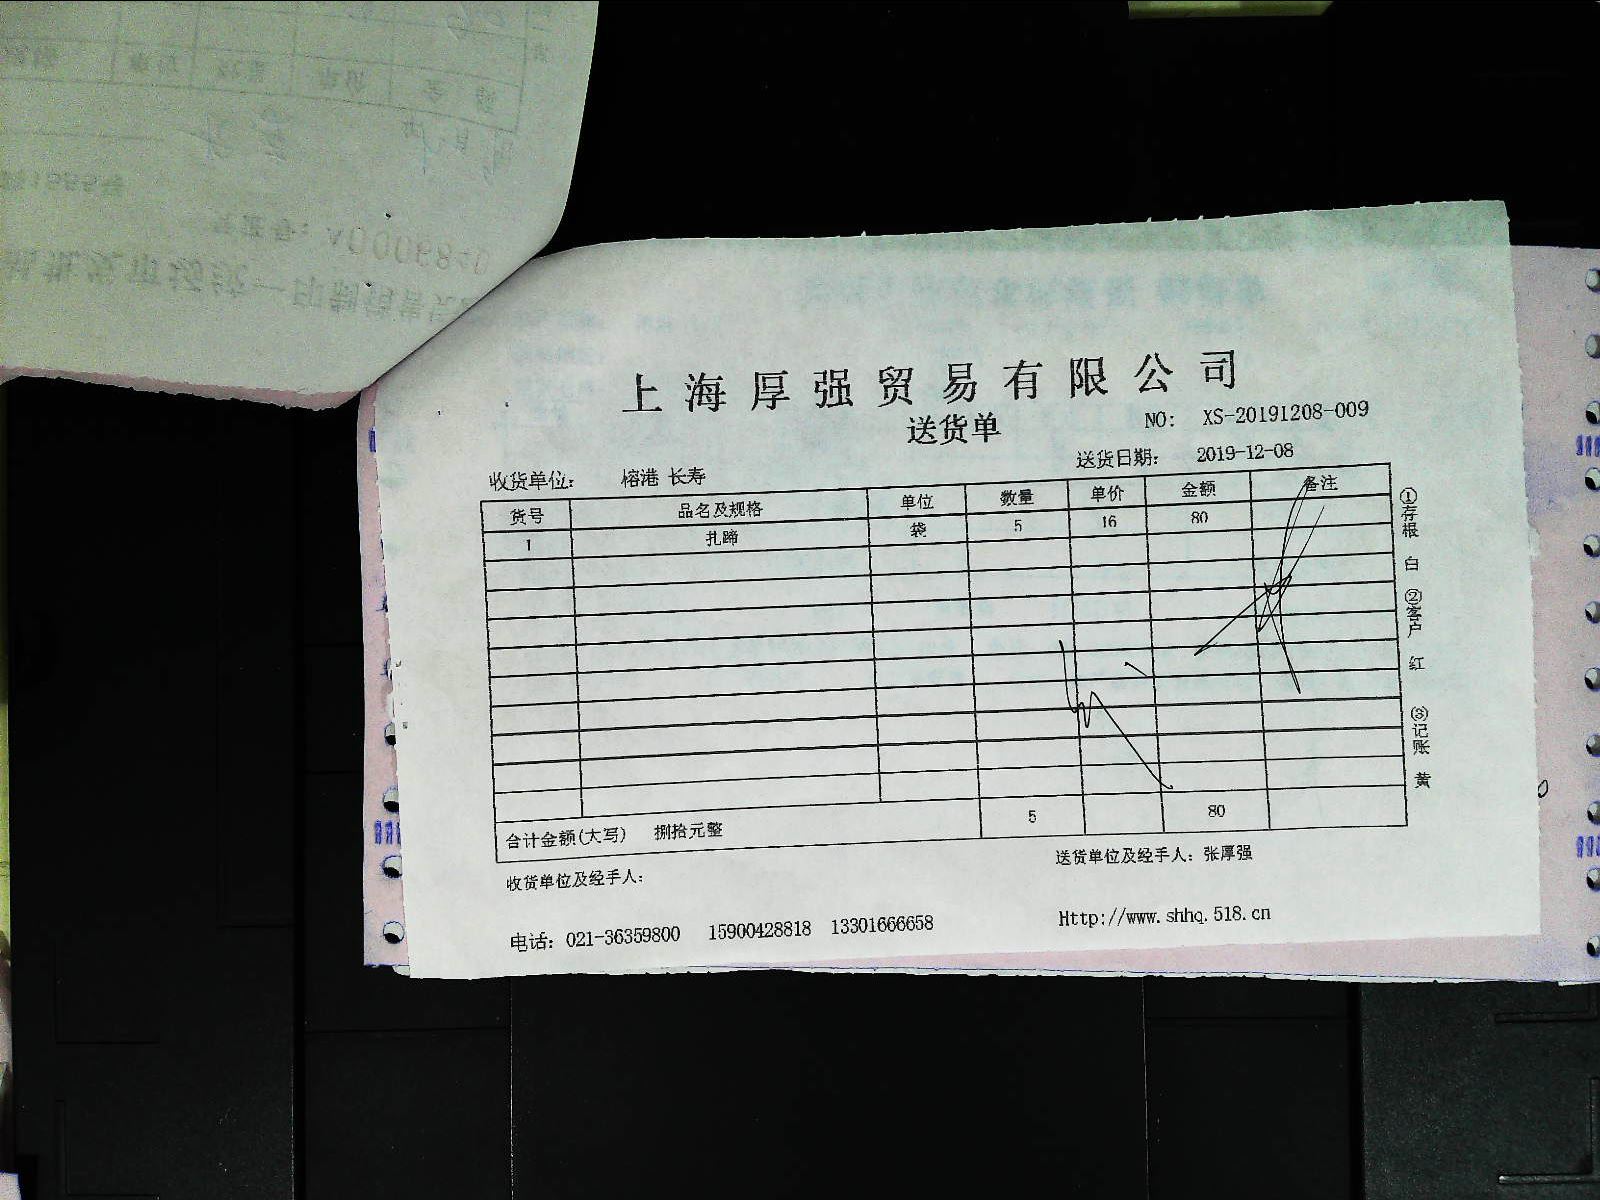 上海厚强贸易有限公司
送货单
NO: XS-20191208-009
收货单位: 榕港 长寿
送货日期: 2019-12-08
货号 品名及规格 单位 数量 单价 金额 备注
1 扎蹄 袋 5 16 80
合计金额(大写) 捌拾元整 5 80
收货单位及经手人:
送货单位及经手人: 张厚强
电话: 021-36359800 15900428818 13301666658
Http://www.shhq.518.cn
①存根 白 ②客户 红 ③记账 黄